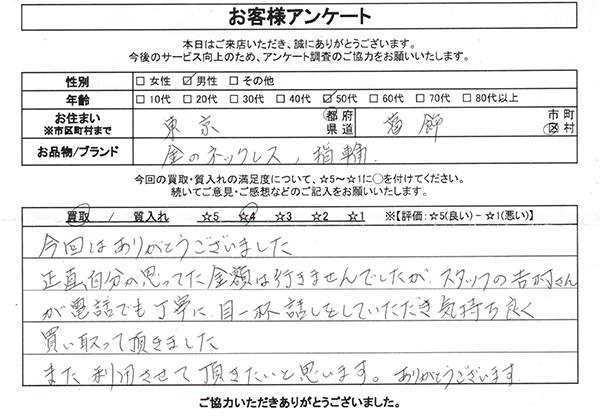 お客様アンケート
本日はご来店いただき、誠にありがとうございます。
今後のサービス向上のため、アンケート調査のご協力をお願いいたします。
性別 □ 女性 ☑ 男性 □ その他
年齢 □ 10代 □ 20代 □ 30代 □ 40代 ☑ 50代 □ 60代 □ 70代 □ 80代以上
お住まい ※市区町村まで 東京 都府県道 葛飾 市町区村
お品物/ブランド 金のネックレス、指輪
今回の買取・質入れの満足度について、☆5～☆1に○を付けてください。
続いてご意見・ご感想などのご記入をお願いいたします。
買取 / 質入れ ☆5 ☆4 ☆3 ☆2 ☆1 ※【評価:☆5(良い) - ☆1(悪い)】
今回はありがとうございました
正直自分の思ってた金額は行きませんでしたが、スタッフの吉村さん
が電話でも丁寧に、目一杯話しをしていただき気持ち良く
買い取って頂きました
また利用させて頂きたいと思います。ありがとうございます
ご協力いただきありがとうございました。